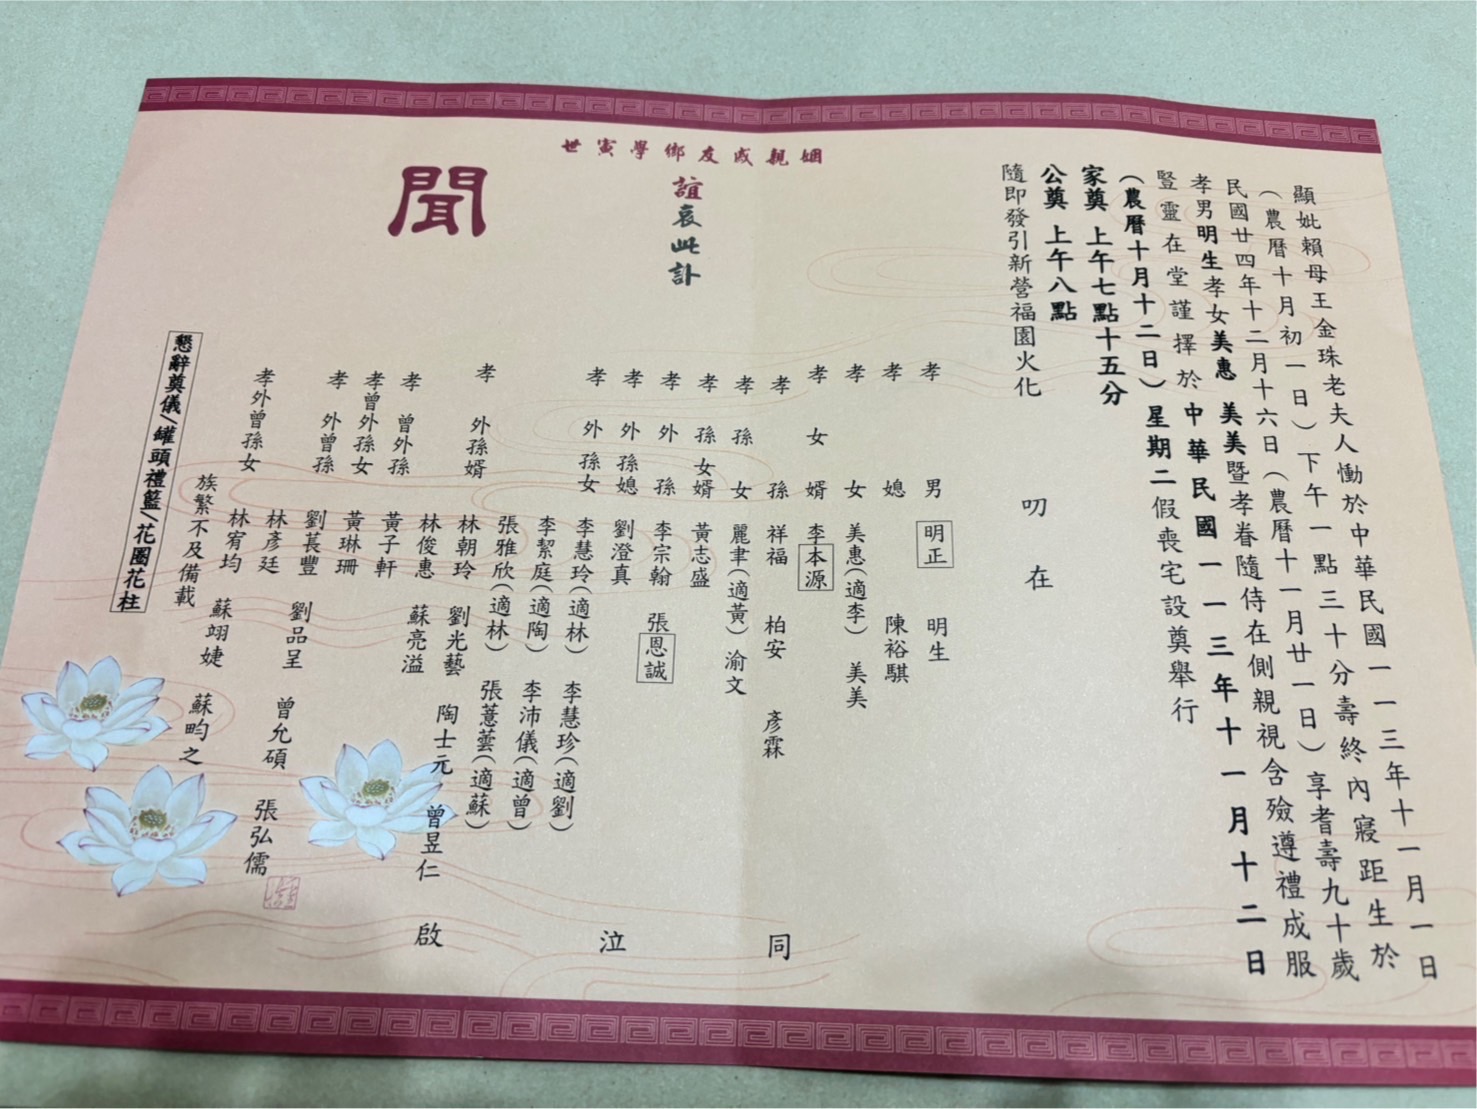 顯妣賴母王金珠老夫人慟於中華民國一一三年十一月一日
（農曆十月初一日）下午一點三十分壽終內寢距生於
民國廿四年十二月十六日（農曆十一月廿一日）享耆壽九十歲
孝男明生孝女美惠 美美暨孝眷隨侍在側親視含殮遵禮成服
豎靈在堂謹擇於 中華民國一一三年十一月十二日
（農曆十月十二日）星期二假喪宅設奠舉行
家奠 上午七點十五分
公奠 上午八點
隨即發引新營福園火化
叨在
姻親戚友鄉學寅世
誼哀此訃
聞
孝男 明正 明生
孝媳 陳裕騏
孝女 美惠（適李） 美美
孝女婿 李本源
孝孫 祥福 柏安 彥霖
孝孫女 麗聿（適黃） 渝文
孝孫女婿 黃志盛
孝外孫 李宗翰 張恩誠
孝外孫媳 劉澄真
孝外孫女 李慧玲（適林） 李慧珍（適劉）
李絜庭（適陶） 李沛儀（適曾）
張雅欣（適林） 張薏蕓（適蘇）
孝外孫婿 林朝玲 劉光藝 陶士元 曾昱仁
林俊惠 蘇亮溢
孝曾外孫 黃子軒
孝曾外孫女 黃琳珊
孝外曾孫 劉萇豐 劉品呈 曾允碩 張弘儒
林彥廷
孝外曾孫女 林宥均 蘇翊婕 蘇畇之
族繁不及備載
同泣啟
懇辭奠儀/罐頭禮籃/花圈花柱